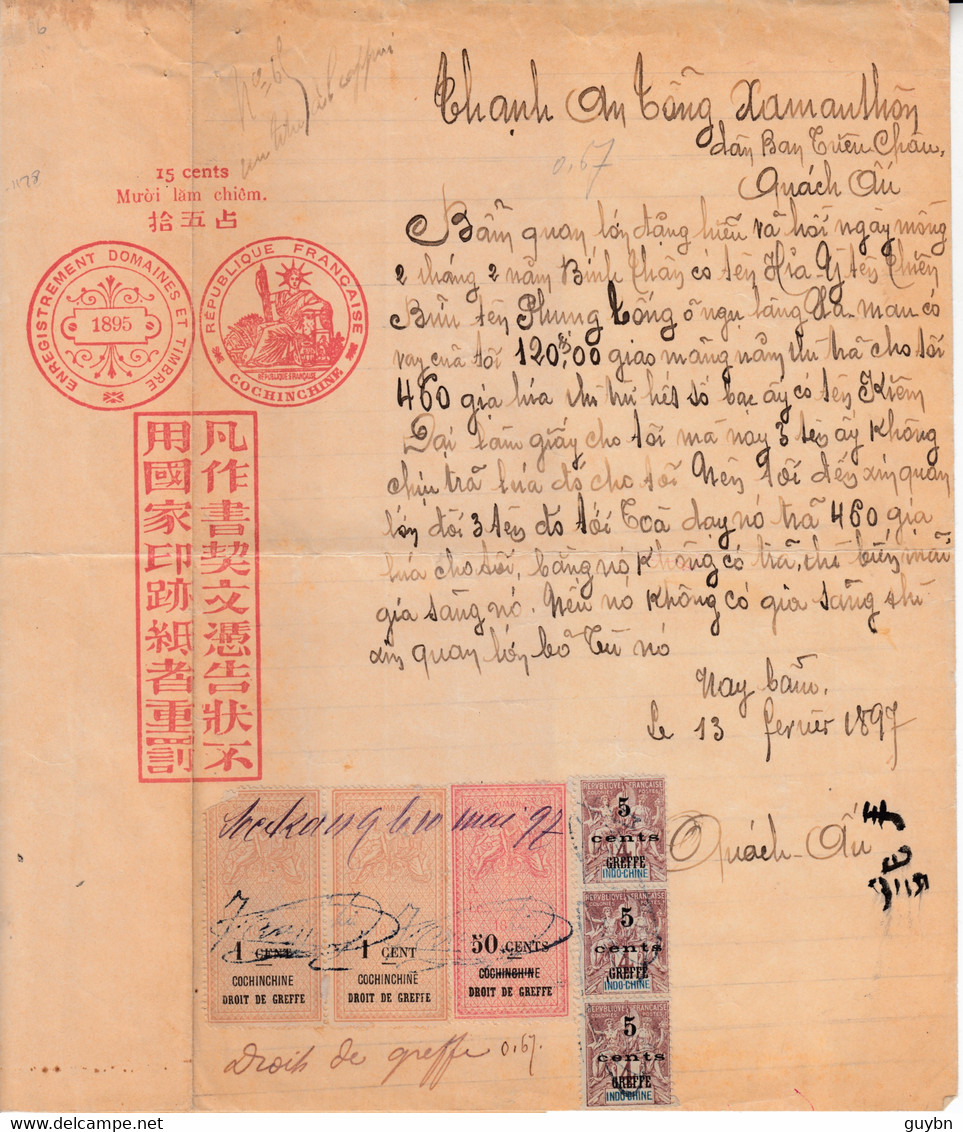 Thạnh An Tổng Xamanthôn
dân Ban Triều Châu,
Quách Ấu
0.67
15 cents
Mười lăm chiêm.
拾五占
ENREGISTREMENT DOMAINES ET TIMBRE
1895
RÉPUBLIQUE FRANÇAISE
RÉPUBLIQUE FRANÇAISE
COCHINCHINE
凡作書契文憑告狀不
用國家印跡紙者重罰
Bẩm quan lớn đặng hiểu và hồi ngày mồng
2 tháng 2 năm Bính Thân có tên Hỏa Y tên Thiên
Bửu tên Phung Tống ở ngụ làng Xa-mau có
vay của tôi 120$00 giao mãng năm thì trả cho tôi
460 giạ lúa thì trừ hết số bạc ấy có tên Kiêm
Đại làm giấy cho tôi mà nay 3 tên ấy không
chịu trả lúa đó cho tôi Nên tôi đến xin quan
lớn đòi 3 tên đó tới Toà dạy nó trả 460 giạ
lúa cho tôi, bằng nó không có trả, thì biên mãi
gia sảng nó. Nếu nó không có gia sảng thì
xin quan lớn bỏ Tù nó
Nay bẩm.
Le 13 février 1897
Quách-Ấu
mai 97
1 CENT
COCHINCHINE
DROIT DE GREFFE
1 CENT
COCHINCHINE
DROIT DE GREFFE
50 CENTS
COCHINCHINE
DROIT DE GREFFE
RÉPUBLIQUE FRANÇAISE
COLONIES POSTES
5
cents
GREFFE
INDO-CHINE
RÉPUBLIQUE FRANÇAISE
COLONIES POSTES
5
cents
GREFFE
INDO-CHINE
RÉPUBLIQUE FRANÇAISE
COLONIES POSTES
5
cents
GREFFE
INDO-CHINE
Droits de greffe 0.67.
guybn